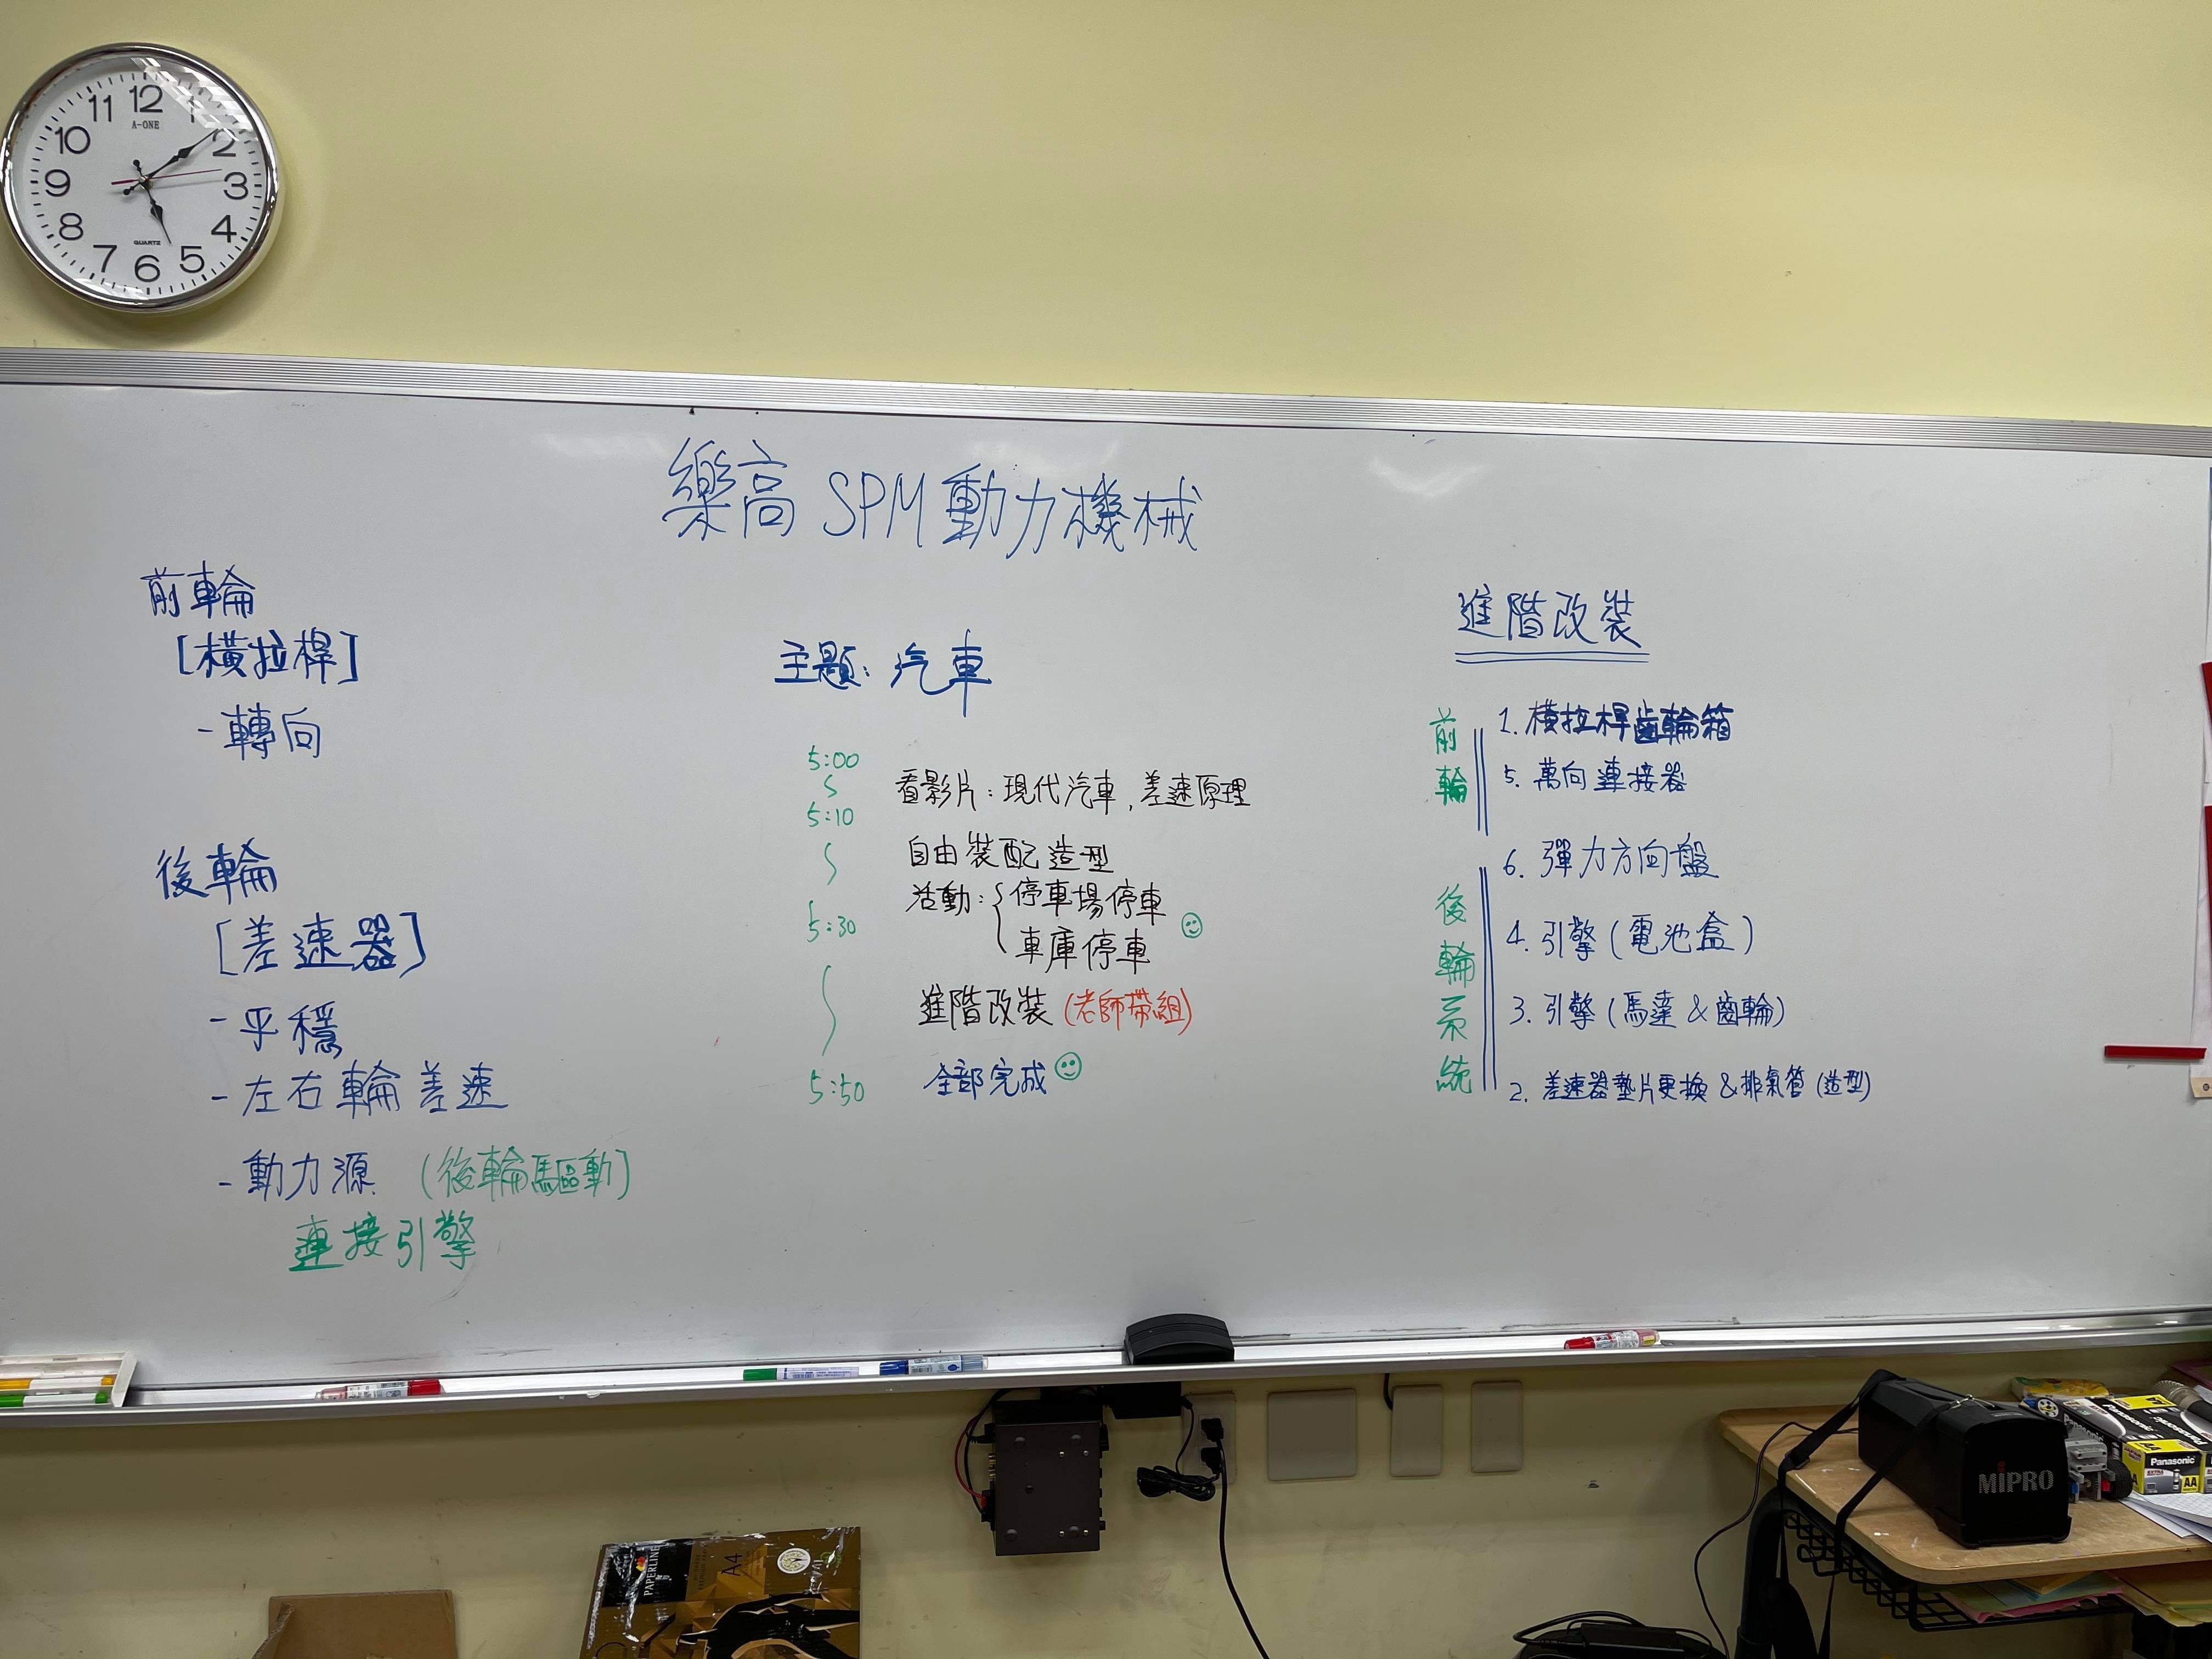 11 12 1
A-ONE
10 2
9 3
8 4
QUARTZ
7 6 5
樂高 SPM 動力機械
前輪
[橫拉桿]
- 轉向
後輪
[差速器]
- 平穩
- 左右輪差速
- 動力源 (後輪驅動)
連接引擎
主題: 汽車
5:00
看影片: 現代汽車, 差速原理
5:10
自由裝配造型
活動: 停車場停車
5:30
車庫停車
進階改裝 (老師帶組)
5:50 全部完成
進階改裝
前輪
1. 橫拉桿齒輪箱
5. 萬向連接器
6. 彈力方向盤
後輪系統
4. 引擎 (電池盒)
3. 引擎 (馬達 & 齒輪)
2. 差速器墊片更換 & 排氣管 (造型)
PAPERLINE
A4
MIPRO
Panasonic
AA